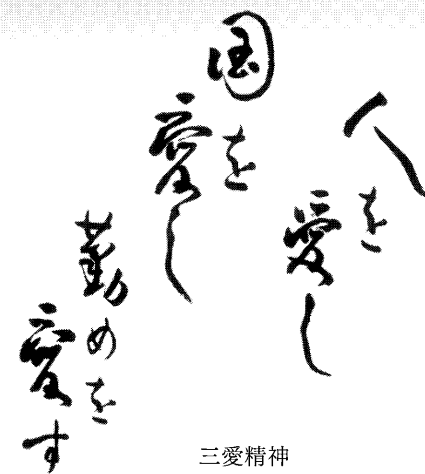 人を愛し
国を愛し
勤めを愛す
三愛精神